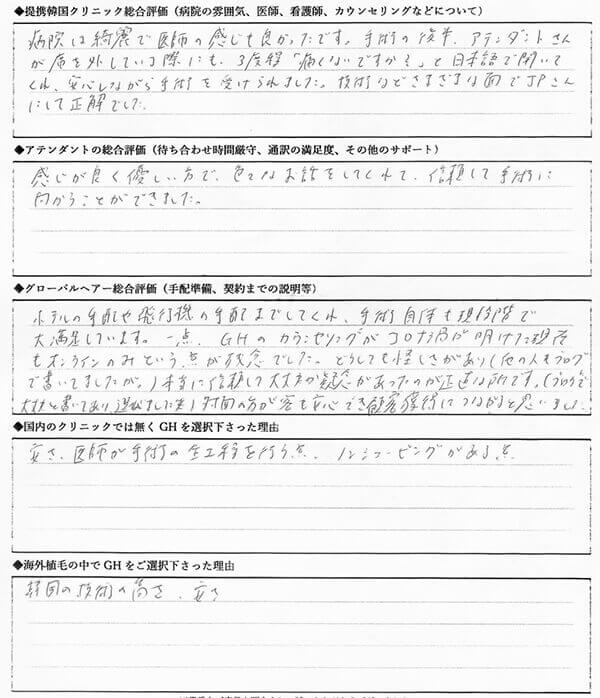 ◆提携韓国クリニック総合評価（病院の雰囲気、医師、看護師、カウンセリングなどについて）
病院は綺麗で医師の感じも良かったです。手術の後半、アテンダントさん
が席を外している際にも、3度程「痛くないですか？」と日本語で聞いて
くれ、安心しながら手術を受けられました。技術などさまざまな面でJPさん
にして正解でした。
◆アテンダントの総合評価（待ち合わせ時間厳守、通訳の満足度、その他のサポート）
感じが良く優しい方で、色々なお話をしてくれて、信頼して手術に
向かうことができました。
◆グローバルヘアー総合評価（手配準備、契約までの説明等）
ホテルの手配や飛行機の手配までしてくれ、手術自体も現段階で
大満足しています。一点、GHのカウンセリングがコロナ禍が明けた現在
もオンラインのみという点が残念でした。どうしても怪しさがあり（他の人もブログ
で書いてましたが。）本当に信頼して大丈夫か疑念があったのが正直な所です。（ブログで
大丈夫と書いてあり、選びました笑）対面の方が客も安心でき顧客獲得につながると思いました
◆国内のクリニックでは無くGHを選択下さった理由
安さ、医師が手術の全工程を行う点、ノンシェービングがある点
◆海外植毛の中でGHをご選択下さった理由
韓国の技術の高さ、安さ